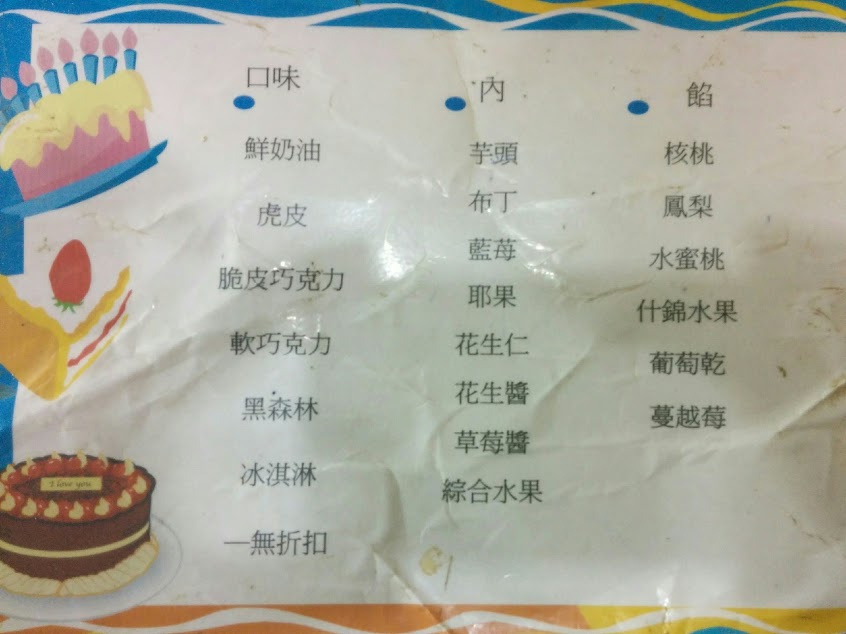 口味
鮮奶油
虎皮
脆皮巧克力
軟巧克力
黑森林
冰淇淋
—無折扣
內 餡
芋頭
布丁
藍苺
耶果
花生仁
花生醬
草莓醬
綜合水果
核桃
鳳梨
水蜜桃
什錦水果
葡萄乾
蔓越莓
I love you